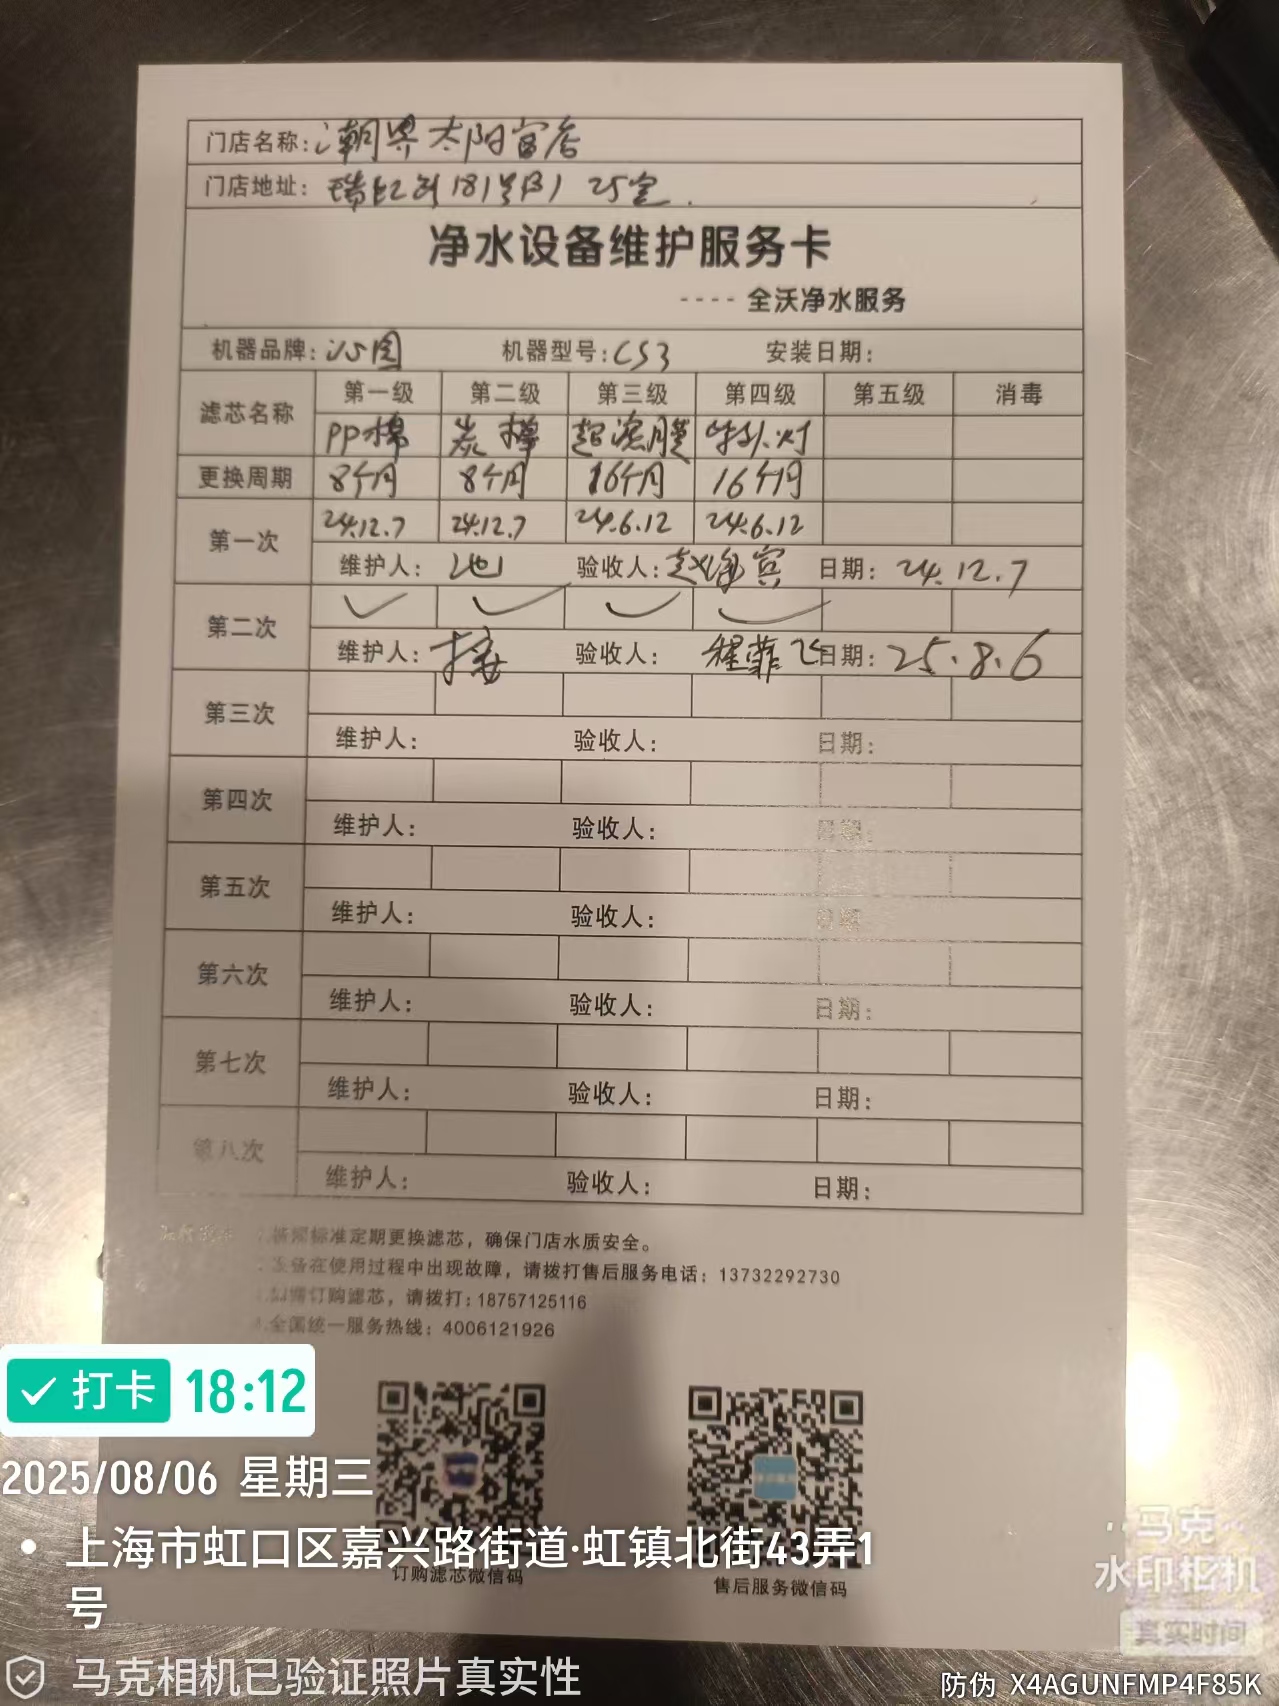 门店名称: 潮界太阳宫店
门店地址: 瑞虹新181号B1 25室.
净水设备维护服务卡
---- 全沃净水服务
机器品牌: 机器型号: CS3 安装日期:
滤芯名称 第一级 第二级 第三级 第四级 第五级 消毒
PP棉 炭棒 超滤膜 灯
更换周期 8个月 8个月 16个月 16个月
第一次 24.12.7 24.12.7 24.6.12 24.6.12
维护人: 验收人: 赵 宾 日期: 24.12.7
第二次 ✓ ✓ ✓ ✓
维护人: 验收人: 程菲飞 日期: 25.8.6
第三次
维护人: 验收人: 日期:
第四次
维护人: 验收人: 日期:
第五次
维护人: 验收人: 日期:
第六次
维护人: 验收人: 日期:
第七次
维护人: 验收人: 日期:
第八次
维护人: 验收人: 日期:
标准定期更换滤芯，确保门店水质安全。
设备在使用过程中出现故障，请拨打售后服务电话: 13732292730
订购滤芯，请拨打: 18757125116
全国统一服务热线: 4006121926
打卡 18:12
2025/08/06 星期三
上海市虹口区嘉兴路街道·虹镇北街43弄1
号
订购滤芯微信码
售后服务微信码
马克
水印相机
真实时间
马克相机已验证照片真实性
防伪 X4AGUNFMP4F85K